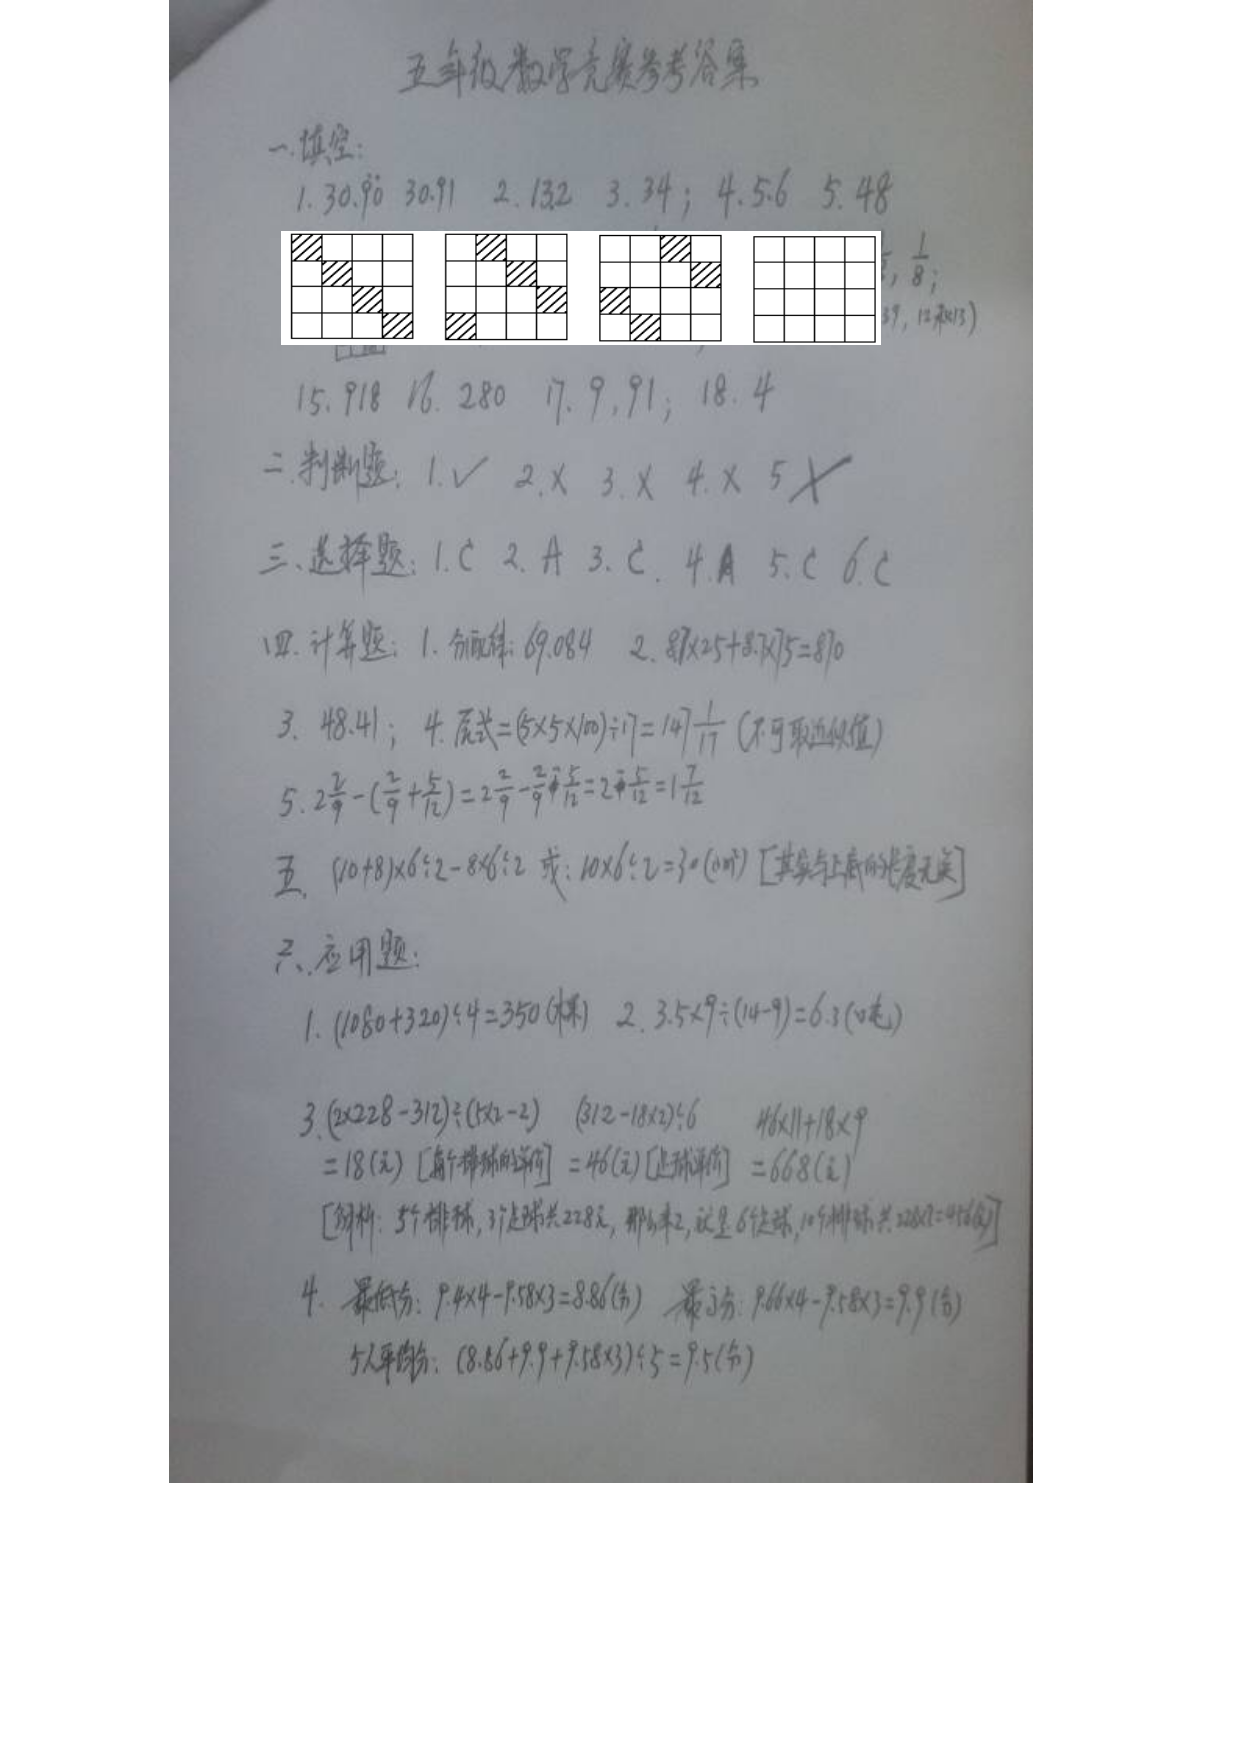 五年级数学竞赛参考答案
一.填空:
1.30.9̇0̇ 30.91 2.132 3.34; 4.5.6 5.48
, 1/8;
39, 12和13)
15.918 16.280 17.9,91; 18.4
二.判断题: 1.✓ 2.X 3.X 4.X 5 X
三、选择题: 1.C 2.A 3.C. 4.A 5.C 6.C
四.计算题: 1.分配律:69.084 2. 8.7×25+8.7×75=870
3. 48.41; 4.原式=(5×5×100)÷17=147 1/17 (不可取近似值)
5. 2 2/9-(2/9+5/12)=2 2/9-2/9-5/12=2-5/12=1 7/12
五. (10+8)×6÷2-8×6÷2 或:10×6÷2=30(cm²) [其实与上底的长度无关]
六、应用题:
1. (1080+320)÷4=350(棵) 2. 3.5×9÷(14-9)=6.3(吨)
3.(2×228-312)÷(5×2-2) (312-18×2)÷6 46×11+18×9
=18(元) [每个排球的单价] =46(元)[足球单价] =668(元)
[分析: 5个排球,3个足球共228元, 那么乘2,就是6个足球,10个排球共228×2=456(元)]
4. 最低分: 9.4×4-9.58×3=8.86(分) 最高分: 9.66×4-9.58×3=9.9(分)
5人平均分: (8.86+9.9+9.58×3)÷5=9.5(分)